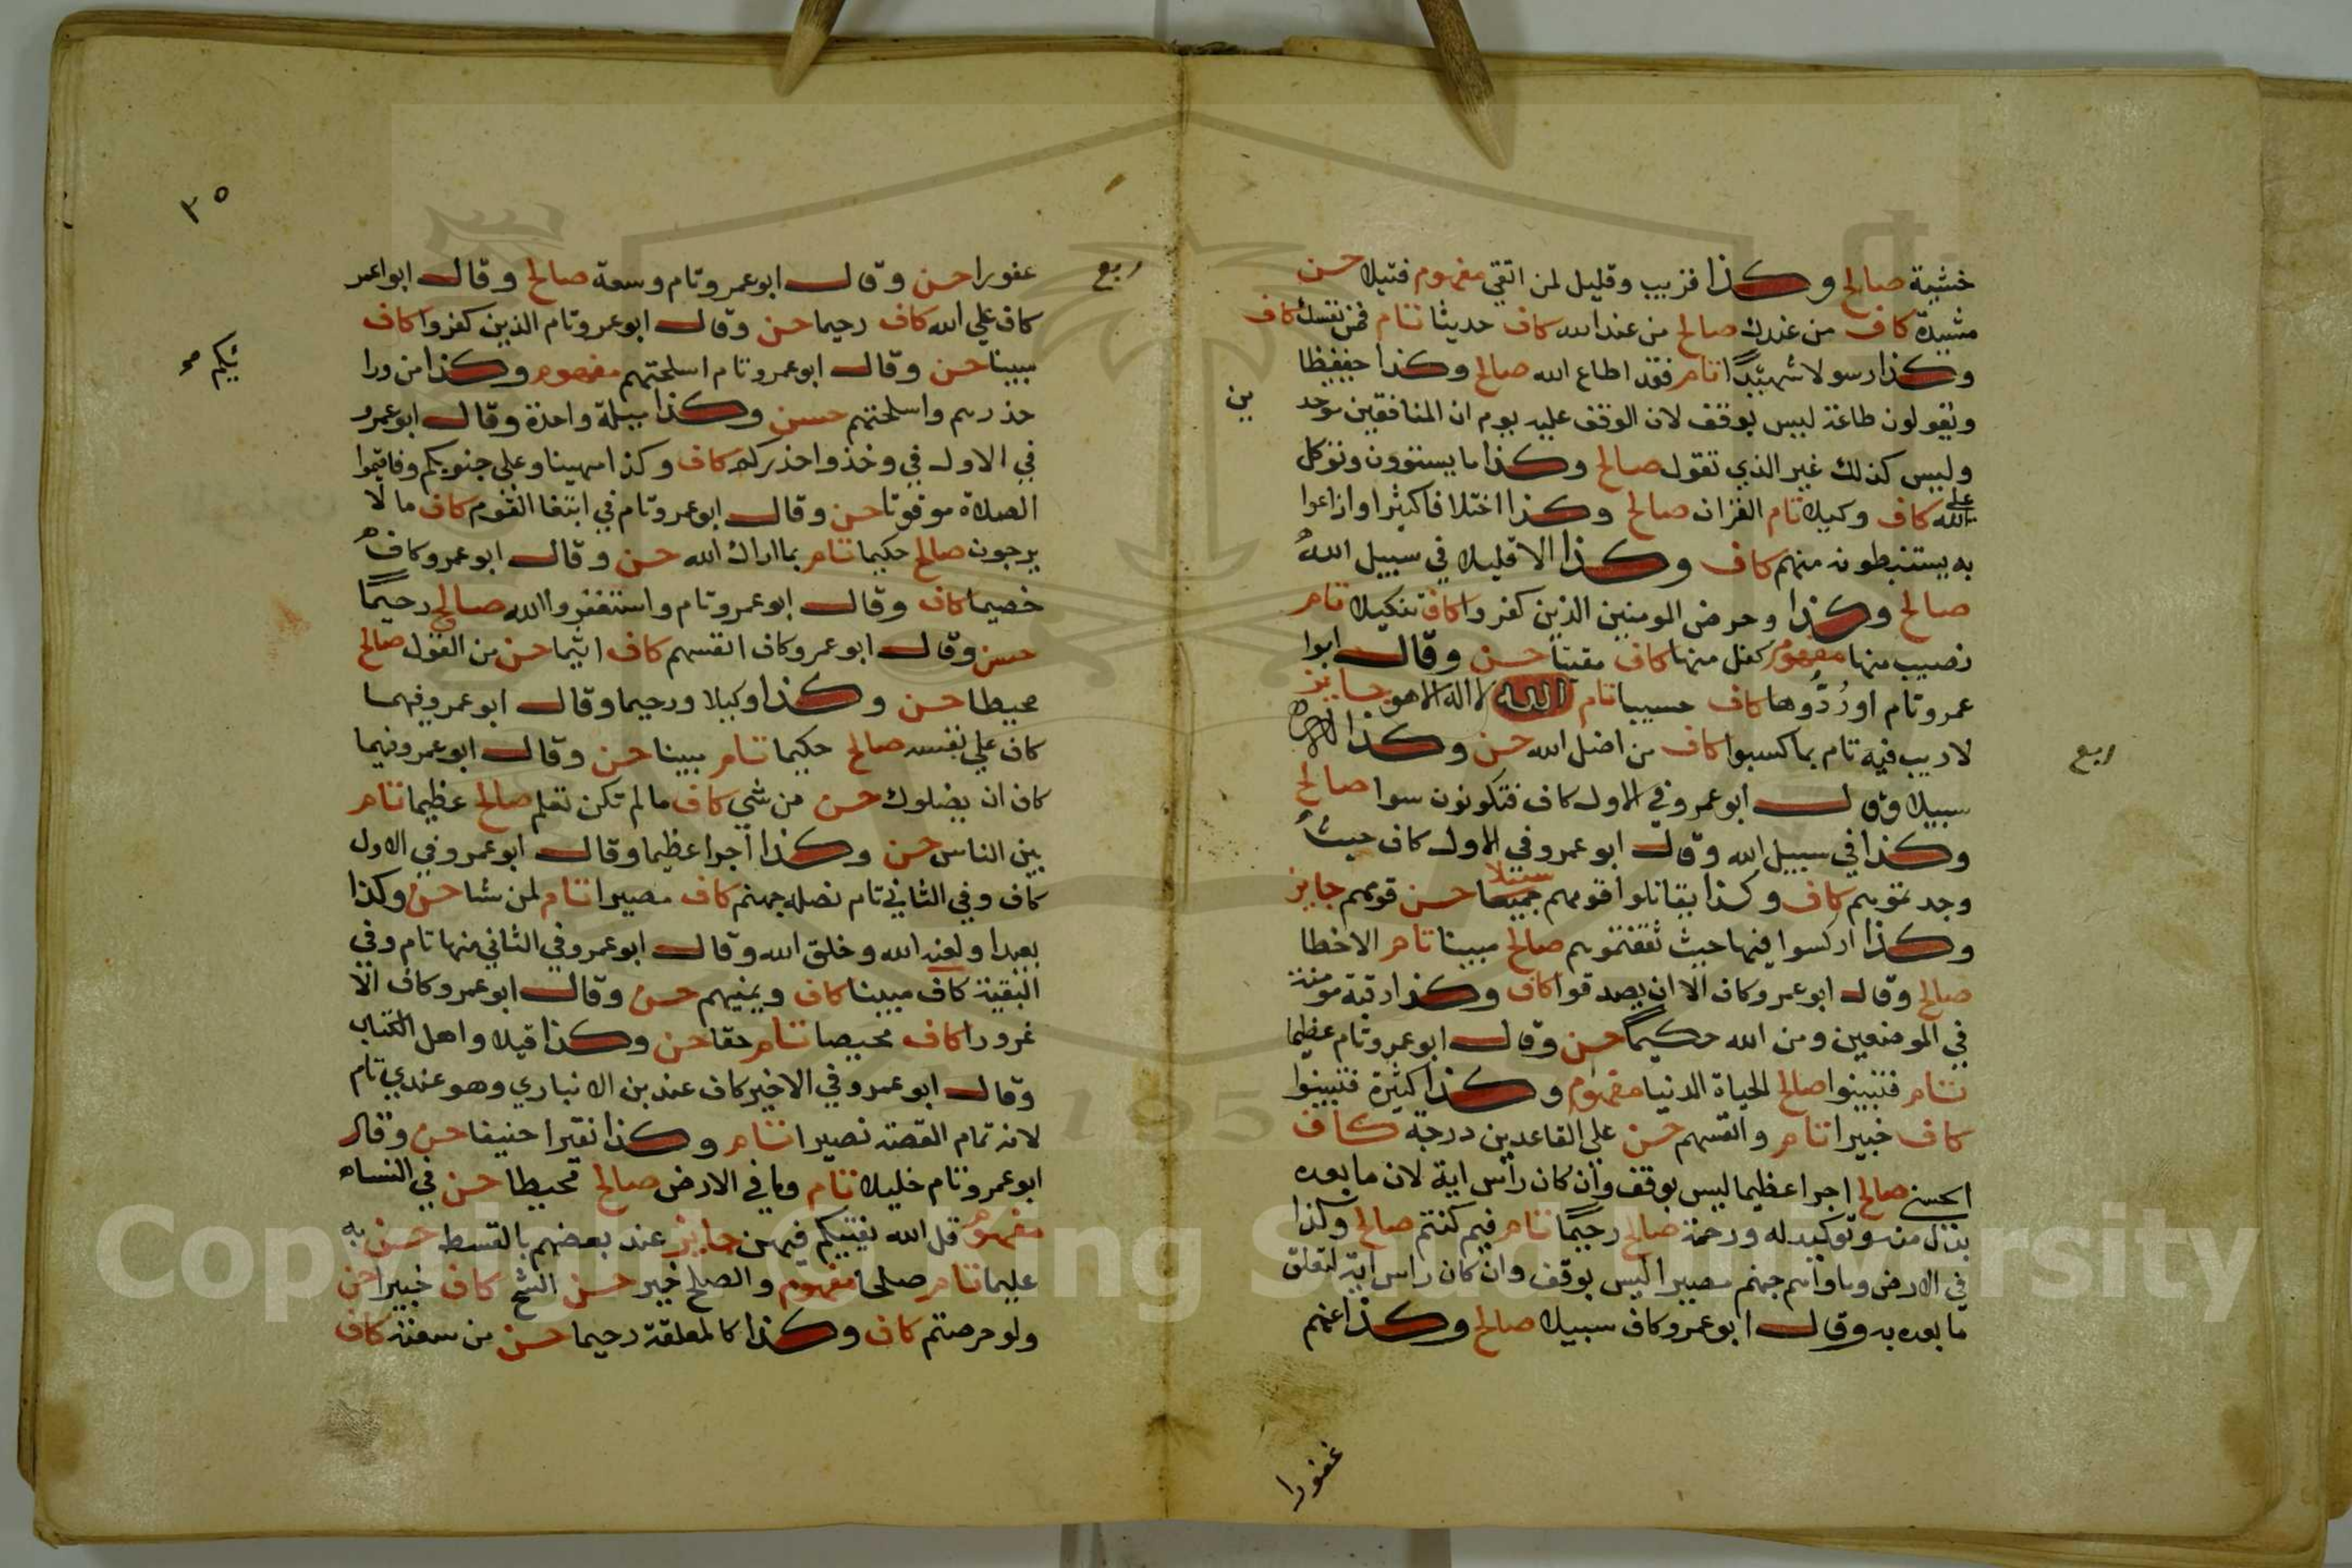 خشية صالح وكذا قريب وقليل لمن اتقي مفهوم فتيلا حسن
مشيدة كاف من عندك صالح من عند الله كاف حديثا تام فمن نفسك كاف
وكذا رسولا شهيدا تام فقد اطاع الله صالح وكذا حفيظا
ويقولون طاعة ليس بوقف لان الوقف عليه يوهم ان المنافقين موحد
ين
وليس كذلك غير الذي تقول صالح وكذا ما يبيتون وتوكل
علي الله كاف وكيلا تام القران صالح وكذا اختلافا كثيرا واذاعوا
به يستنبطونه منهم كاف وكذا الا قليلا في سبيل الله
صالح وكذا وحرض المومنين الذين كفروا كاف تنكيلا تام
نصيب منها مفهوم كفل منها كاف مقيتا حسن وقال ابوا
عمرو تام او ردوها كاف حسيبا تام الله لا اله الا هو جايز
لا ريب فيه تام بما كسبوا كاف من اضل الله حسن وكذا
ربع
سبيلا وقال ابو عمرو في الاول كاف فتكونون سوا صالح
وكذا في سبيل الله وقال ابو عمرو في الاول كاف حيث
وجدتموهم كاف وكذا يقاتلوا قومهم سبيلا حسن قومهم جايز
وكذا اركسوا فيها حيث ثقفتموهم صالح مبينا تام الاخطا
صالح وقال ابو عمرو كاف الا ان يصدقوا كاف وكذا رقبة مومنة
في الموضعين ومن الله حكيما حسن وقال ابو عمرو تام عظيما
تام فتبينوا صالح الحياة الدنيا مفهوم وكذا كثيرة فتبينوا
كاف خبيرا تام وانفسهم حسن علي القاعدين درجة كاف
الحسني صالح اجرا عظيما ليس بوقف وان كان راس اية لان ما بعده
بدل منه وتوكيد له ورحمة صالح رحيما تام فيم كنتم صالح وكذا
في الارض وماواهم جهنم مصيرا ليس بوقف وان كان راس اية لتعلق
ما بعده به وقال ابو عمرو كاف سبيلا صالح وكذا عنهم
غفورا
٣٥
ربع
غفورا حسن وقال ابو عمرو تام وسعة صالح وقال ابو اعمر
كاف علي الله كاف رحيما حسن وقال ابو عمرو تام الذين كفروا كاف
مبينا حسن وقال ابو عمرو تام اسلحتهم مفهوم وكذا من ورا
ئكم صح
حذرهم واسلحتهم حسن وكذا ميلة واحدة وقال ابو عمرو
في الاول في وخذوا حذركم كاف وكذا مهينا وعلي جنوبكم وفاقيموا
الصلاة موقوتا حسن وقال ابو عمرو تام في ابتغا القوم كاف ما لا
يرجون صالح حكيما تام بما اراك الله حسن وقال ابو عمرو كاف
خصيما كاف وقال ابو عمرو تام واستغفروا الله صالح رحيما
حسن وقال ابو عمرو كاف انفسهم كاف اثيما حسن من القول صالح
محيطا حسن وكذا وكيلا ورحيما وقال ابو عمرو فيهما
كاف علي نفسه صالح حكيما تام مبينا حسن وقال ابو عمرو فيما
كاف ان يضلوك حسن من شي كاف ما لم تكن تعلم صالح عظيما تام
بين الناس حسن وكذا اجرا عظيما وقال ابو عمرو في الاول
كاف وفي الثاني تام نصله جهنم كاف مصيرا تام لمن شا حسن وكذا
بعيدا ولعنه الله وخلق الله وقال ابو عمرو في الثاني منها تام وفي
البقية كاف مبينا كاف ويمنيهم حسن وقال ابو عمرو كاف الا
غرورا كاف محيصا تام حقا حسن وكذا قيلا واهل الكتاب
وقال ابو عمرو في الاخير كاف عند بن الانباري وهو عندي تام
لانه تمام القصة نصيرا تام وكذا نقيرا حنيفا حسن وقال
ابو عمرو تام خليلا تام وما في الارض صالح محيطا حسن في النساء
مفهوم قل الله يفتيكم فيهن جايز عند بعضهم بالقسط حسن به
عليما تام صلحا مفهوم والصلح خير حسن الشح كاف خبيرا حسن
ولو حرصتم كاف وكذا كالمعلقة رحيما حسن من سعته كاف
Copyright © King Saud University
1957